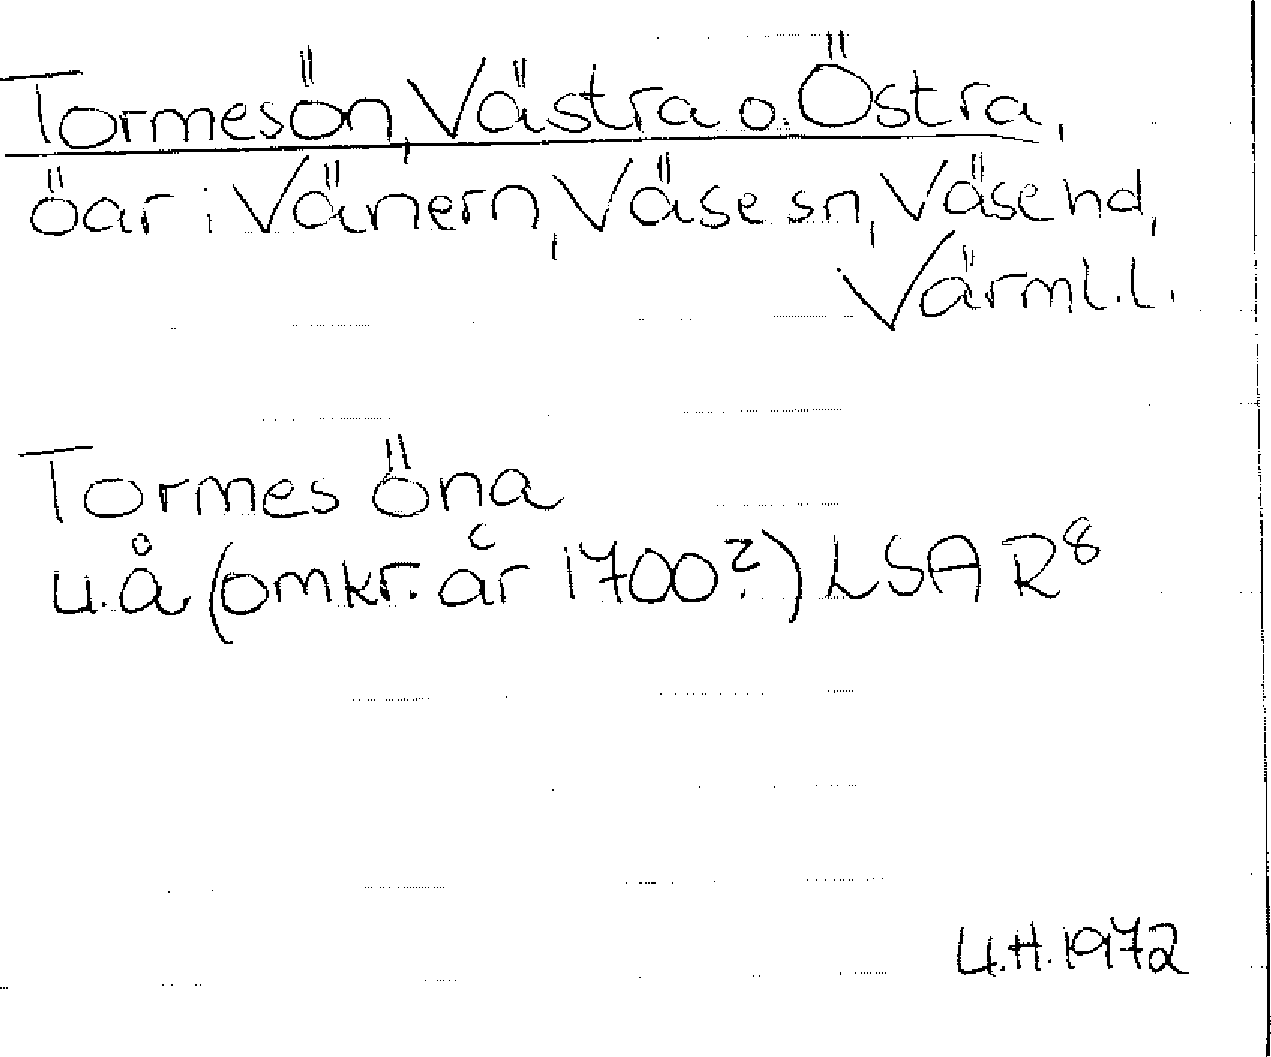 Tormesön, Västra o. Östra,
öar i Vänern, Väse sn, Väse hd,
Värml.l.
Tormes öna
u.å (omkr. år 1700?) LSA R8
U.H. 1972